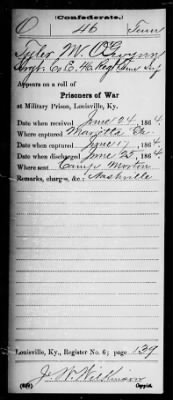 (Confederate.)
O 46 Tenn
Tyler M. O'Gwynn
Sergt. Co. C, 46 Regt Tenn Inf
Appears on a roll of
Prisoners of War
at Military Prison, Louisville, Ky.
Date when received June 24, 1864.
Where captured Marietta Ga.
Date when captured June 17, 1864.
Date when discharged June 25, 1864.
Where sent Camp Morton
Remarks, charges, &c.: Nashville
Louisville, Ky., Register No. 6; page 139
J. W. Wilkinson
Copyist.